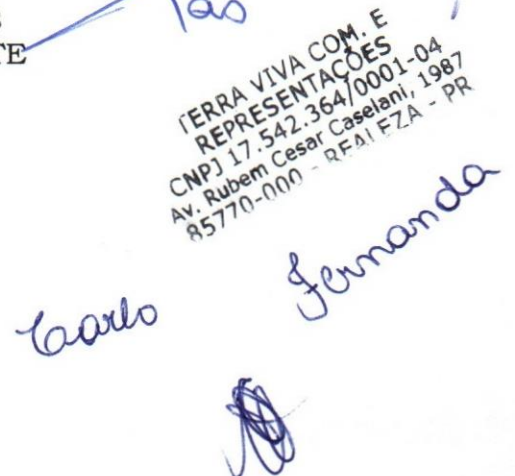 TE
TERRA VIVA COM. E
REPRESENTAÇÕES
CNPJ 17.542.364/0001-04
Av. Rubem Cesar Caselani, 1987
85770-000 - REALEZA - PR
Fernanda
Carlo